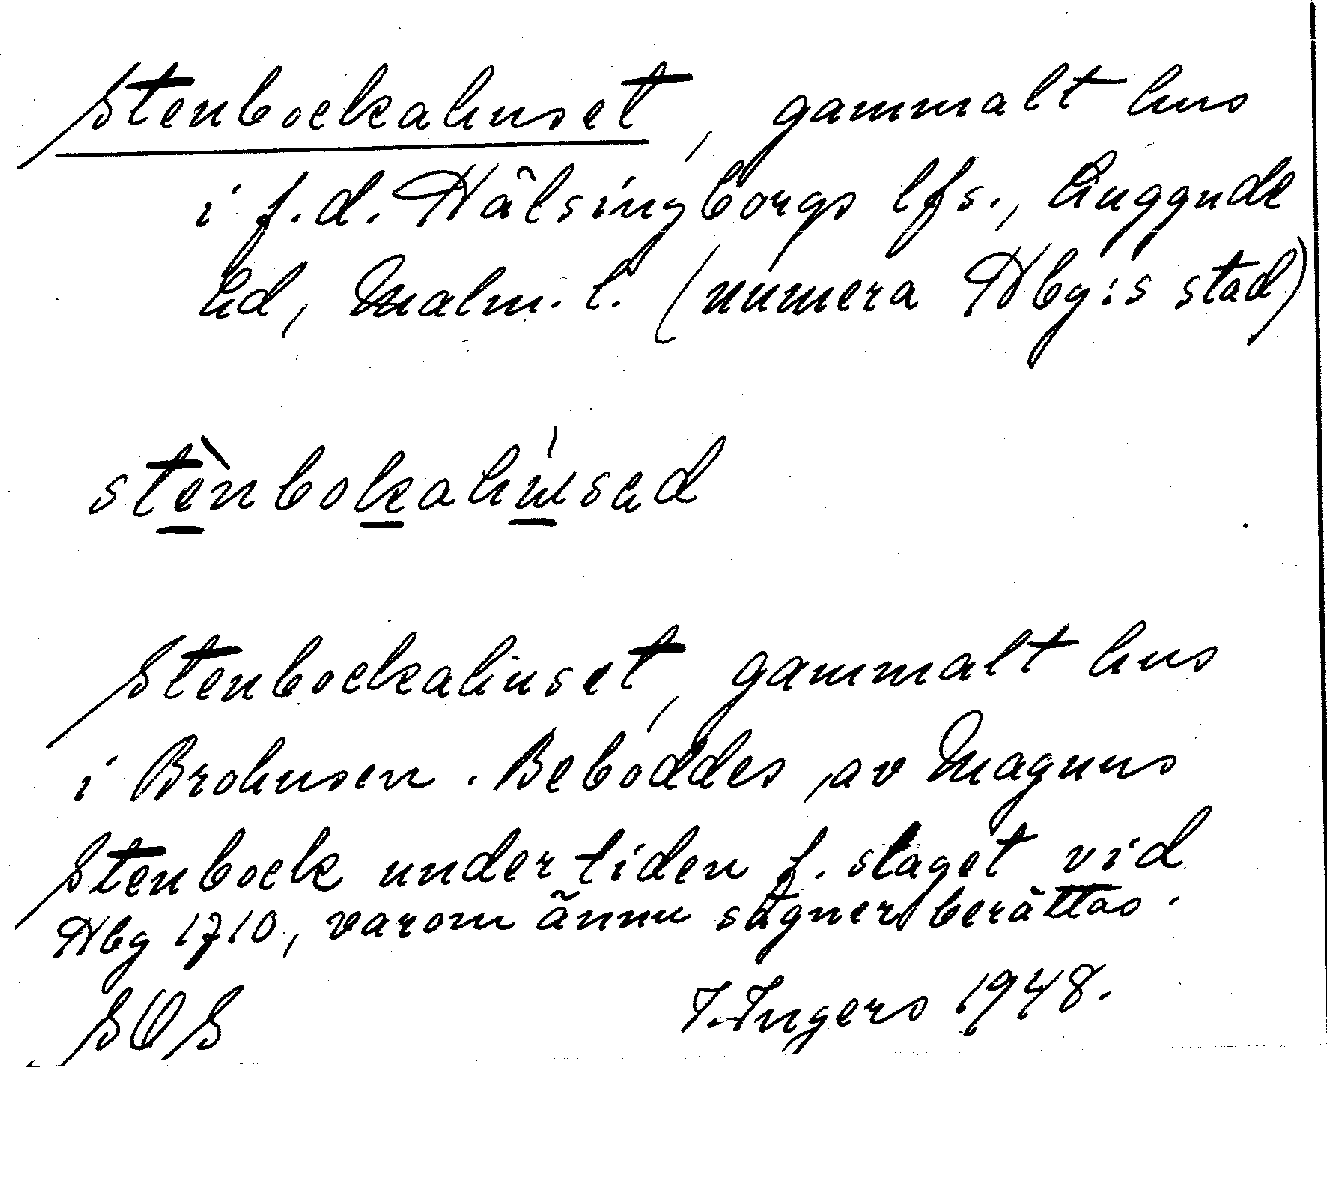 Stenbockahuset, gammalt hus
i f.d. Hälsingborgs lfs., Luggude
hd, Malm. l. (numera Hbg:s stad)
stènbokahúsəd
Stenbockahuset, gammalt hus
i Brohusen. Beboddes av Magnus
Stenbock under tiden f. slaget vid
Hbg 1710, varom ännu sägner berättas.
SOS
I. Ingers 1948.